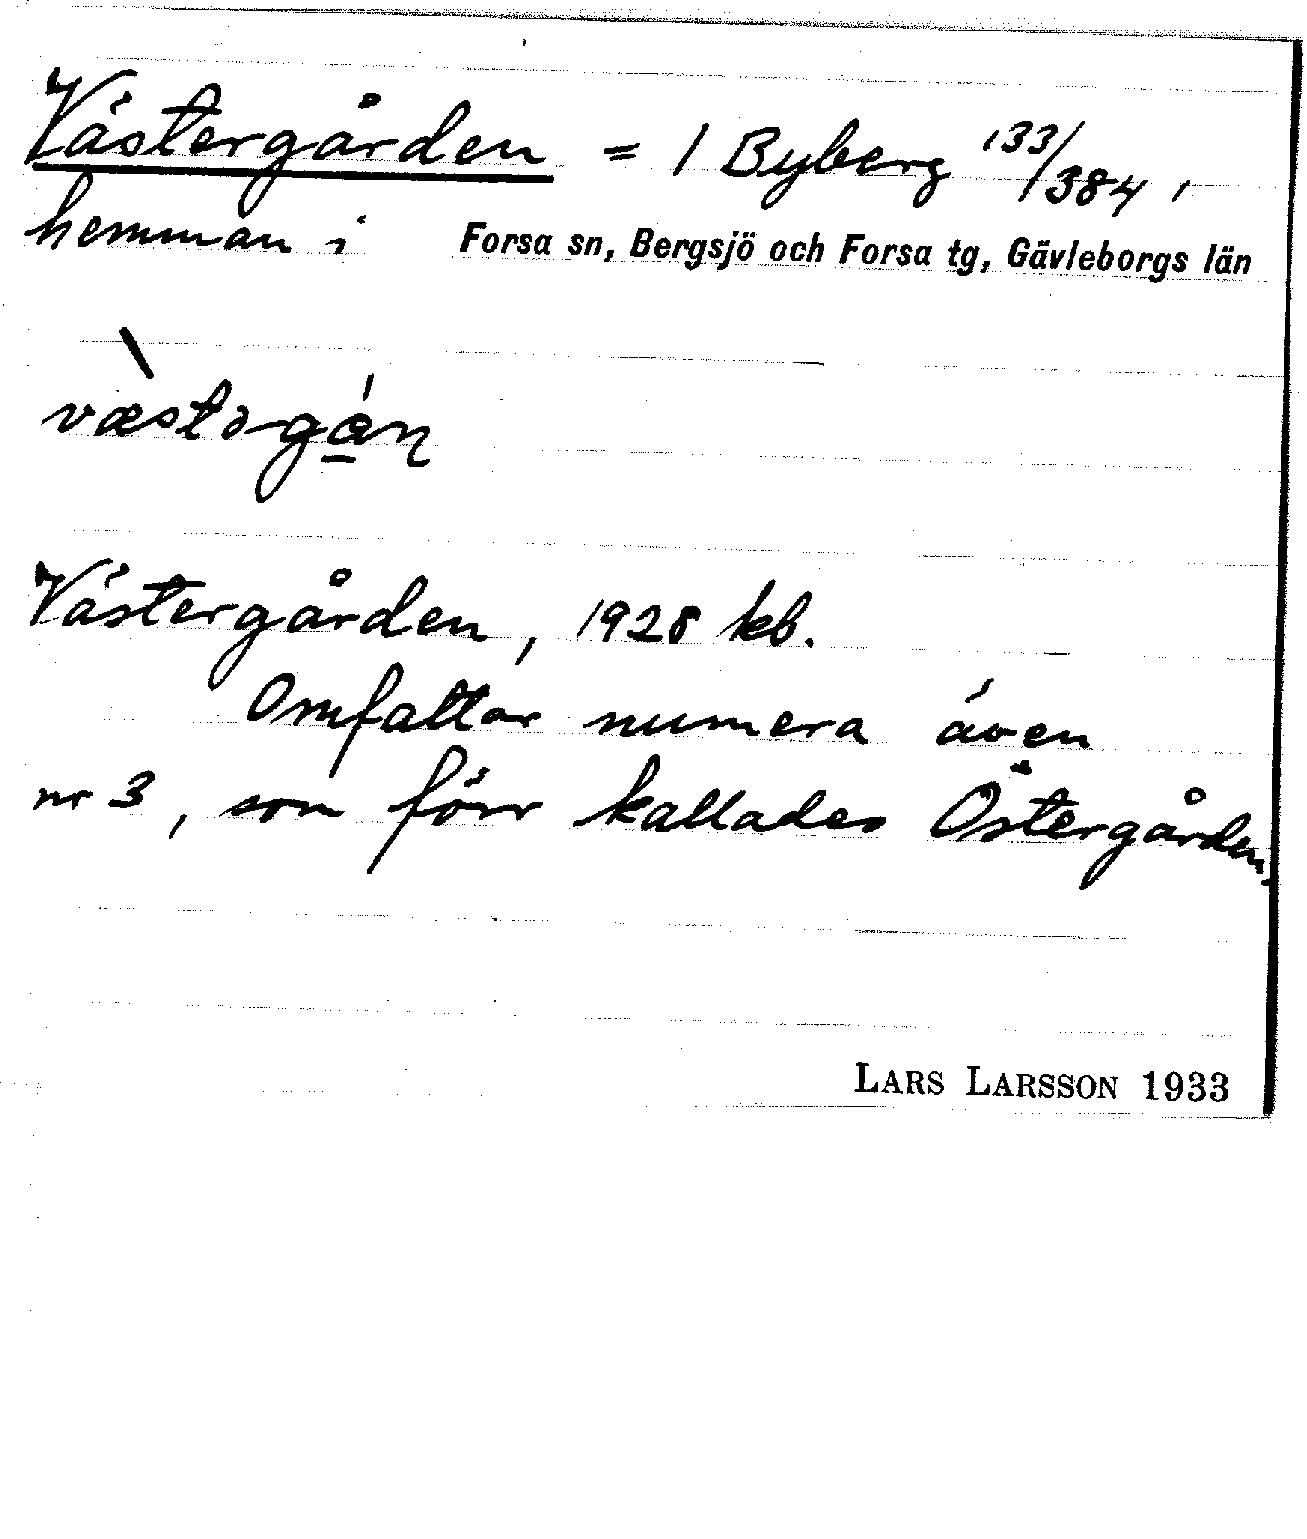 Västergården = 1 Byberg 133/384,
hemman i Forsa sn, Bergsjö och Forsa tg, Gävleborgs län
væ̀stərgán̲
Västergården, 1928 kb.
Omfattar numera även
nr 3, som förr kallades Östergården.
LARS LARSSON 1933